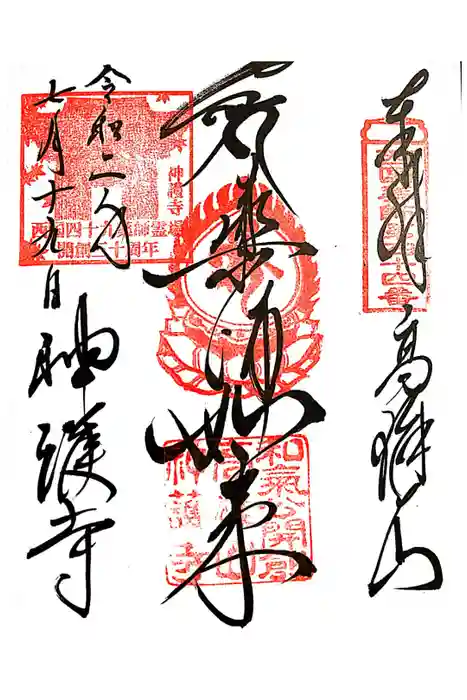 奉拝
高雄山
薬師如来
令和二年
七月十九日
神護寺
神護寺
西国四十九薬師霊場
開創三十周年
和氣公開創
高雄山
神護寺